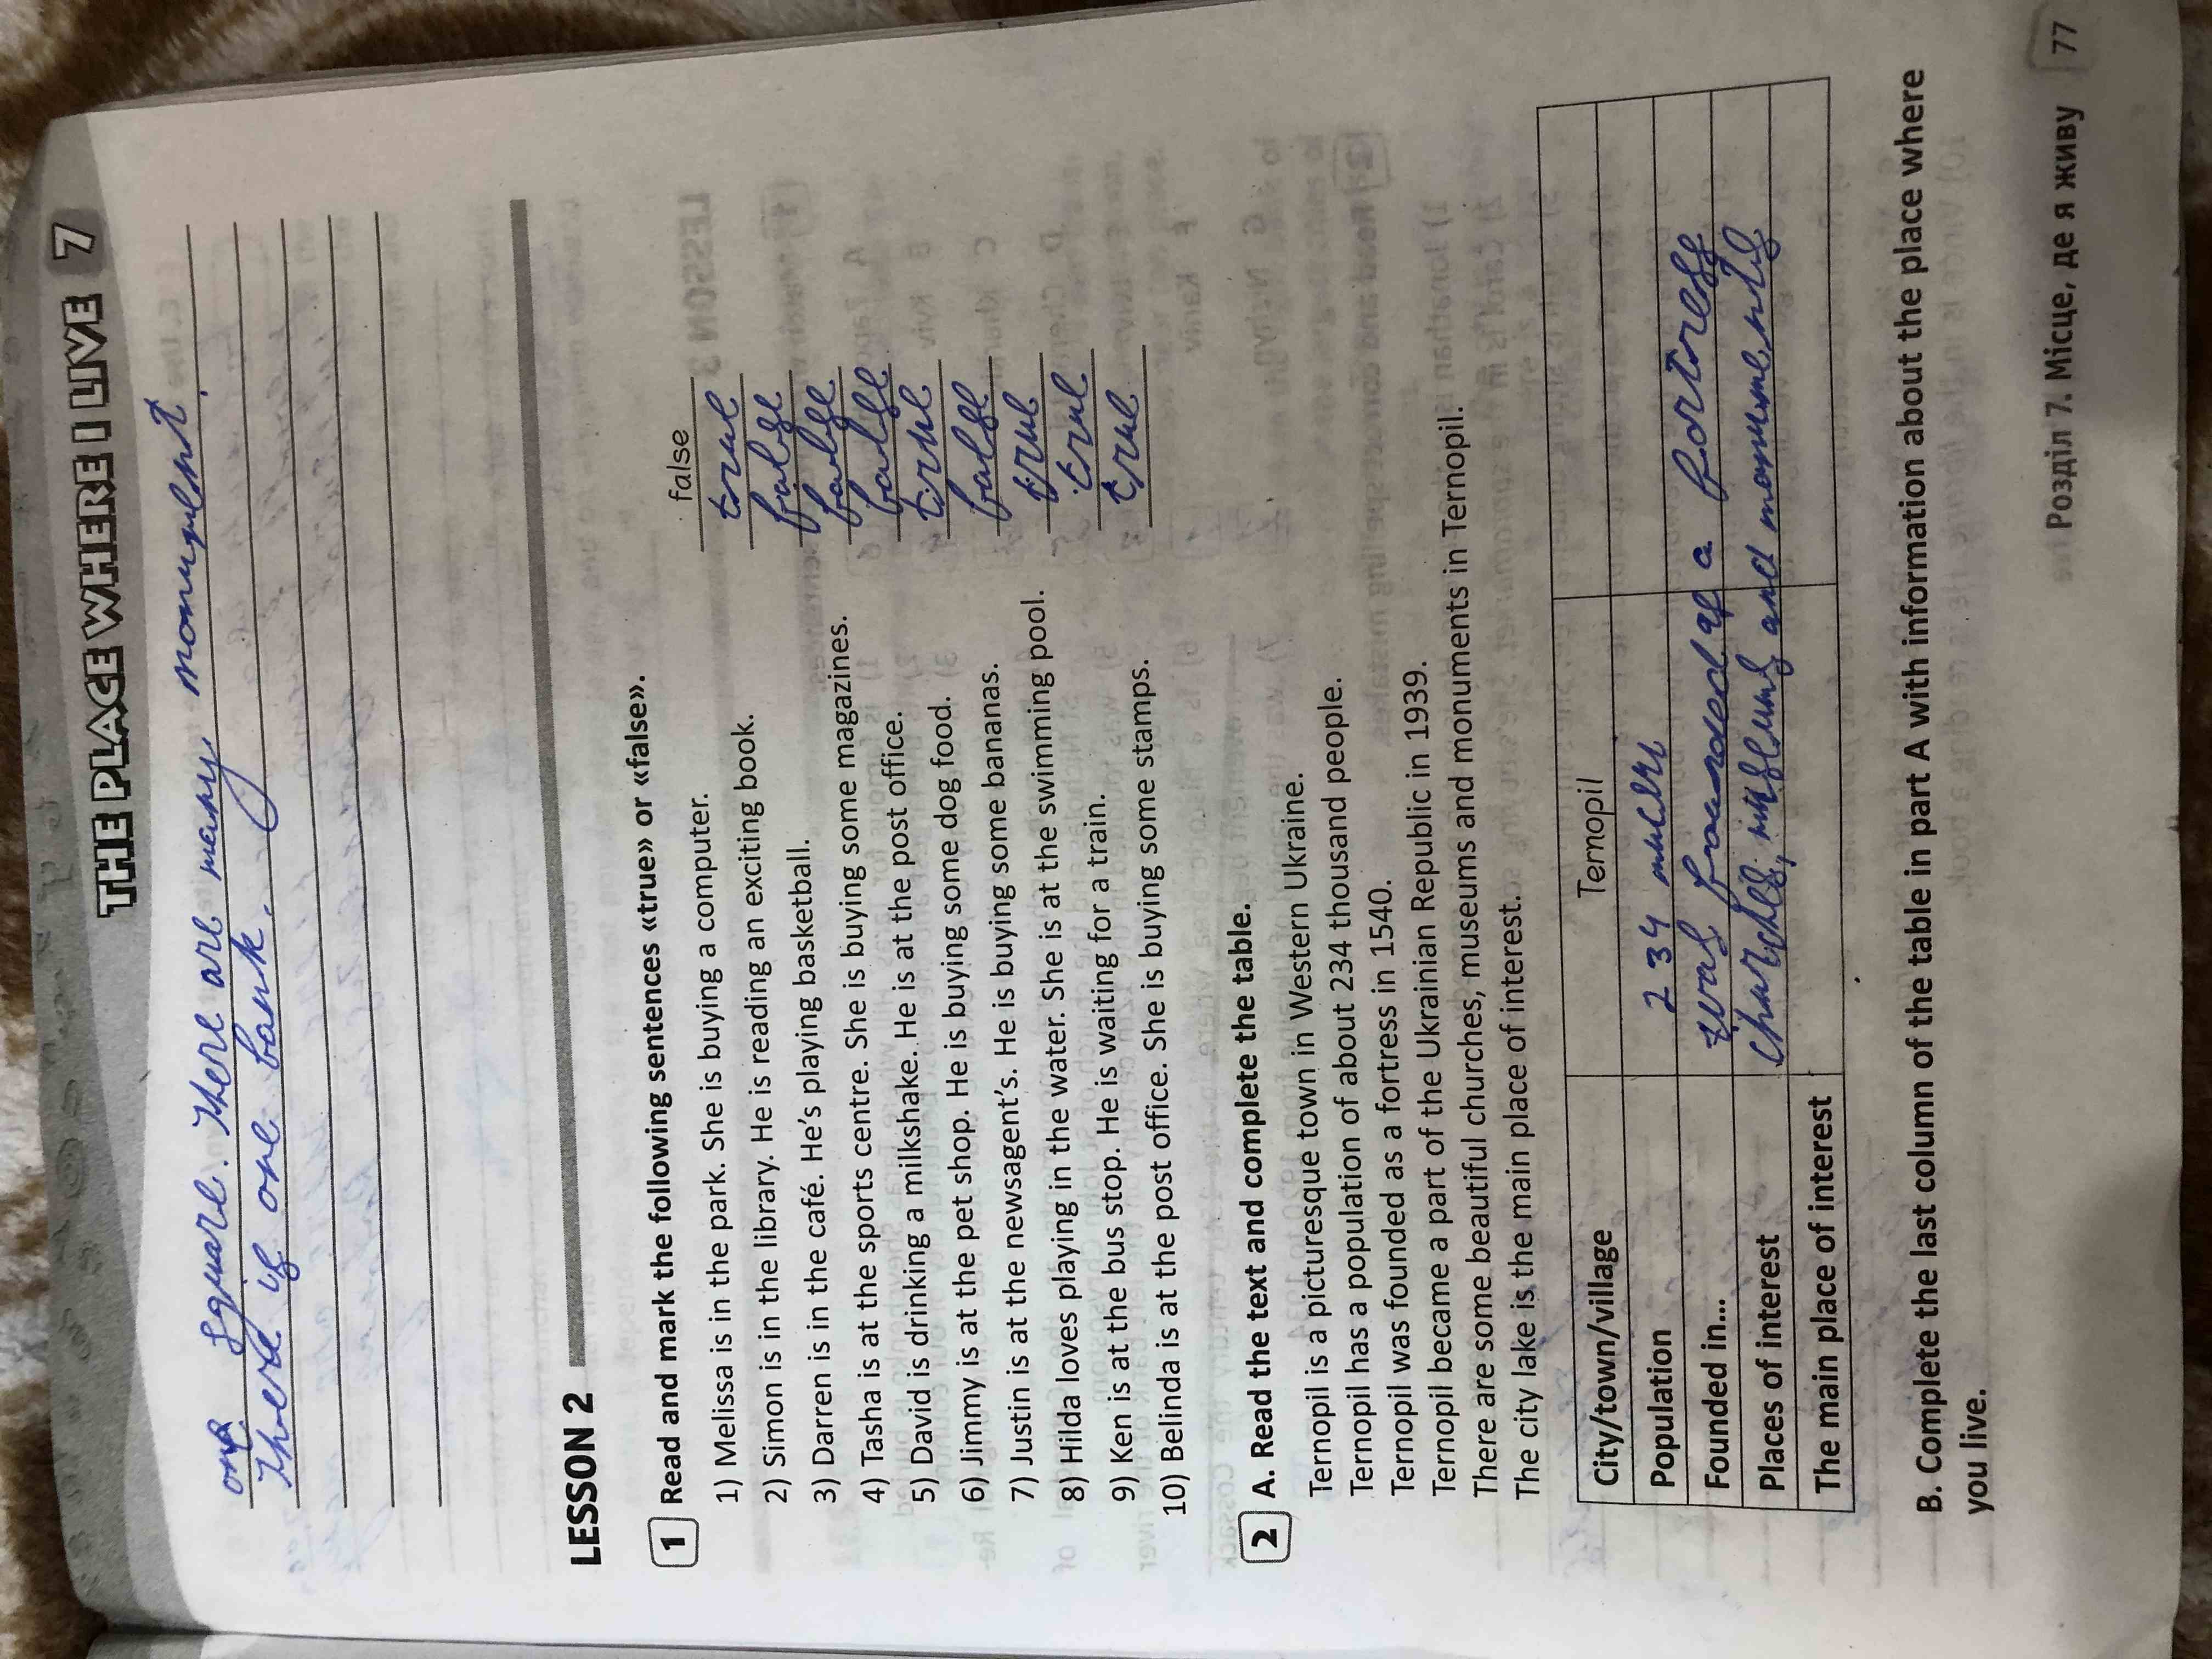 THE PLACE WHERE I LIVE 7
one square. There are many monument.
There is one bank.
LESSON 2
1 Read and mark the following sentences «true» or «false».
1) Melissa is in the park. She is buying a computer. false
2) Simon is in the library. He is reading an exciting book. true
3) Darren is in the café. He's playing basketball. false
4) Tasha is at the sports centre. She is buying some magazines. false
5) David is drinking a milkshake. He is at the post office. false
6) Jimmy is at the pet shop. He is buying some dog food. true
7) Justin is at the newsagent's. He is buying some bananas. false
8) Hilda loves playing in the water. She is at the swimming pool. true
9) Ken is at the bus stop. He is waiting for a train. true
10) Belinda is at the post office. She is buying some stamps. true
2 A. Read the text and complete the table.
Ternopil is a picturesque town in Western Ukraine.
Ternopil has a population of about 234 thousand people.
Ternopil was founded as a fortress in 1540.
Ternopil became a part of the Ukrainian Republic in 1939.
There are some beautiful churches, museums and monuments in Ternopil.
The city lake is the main place of interest.
City/town/village Ternopil
Population 234
Founded in... was founded as a fortress
Places of interest churches, museums and monuments
The main place of interest
B. Complete the last column of the table in part A with information about the place where
you live.
Розділ 7. Місце, де я живу 77